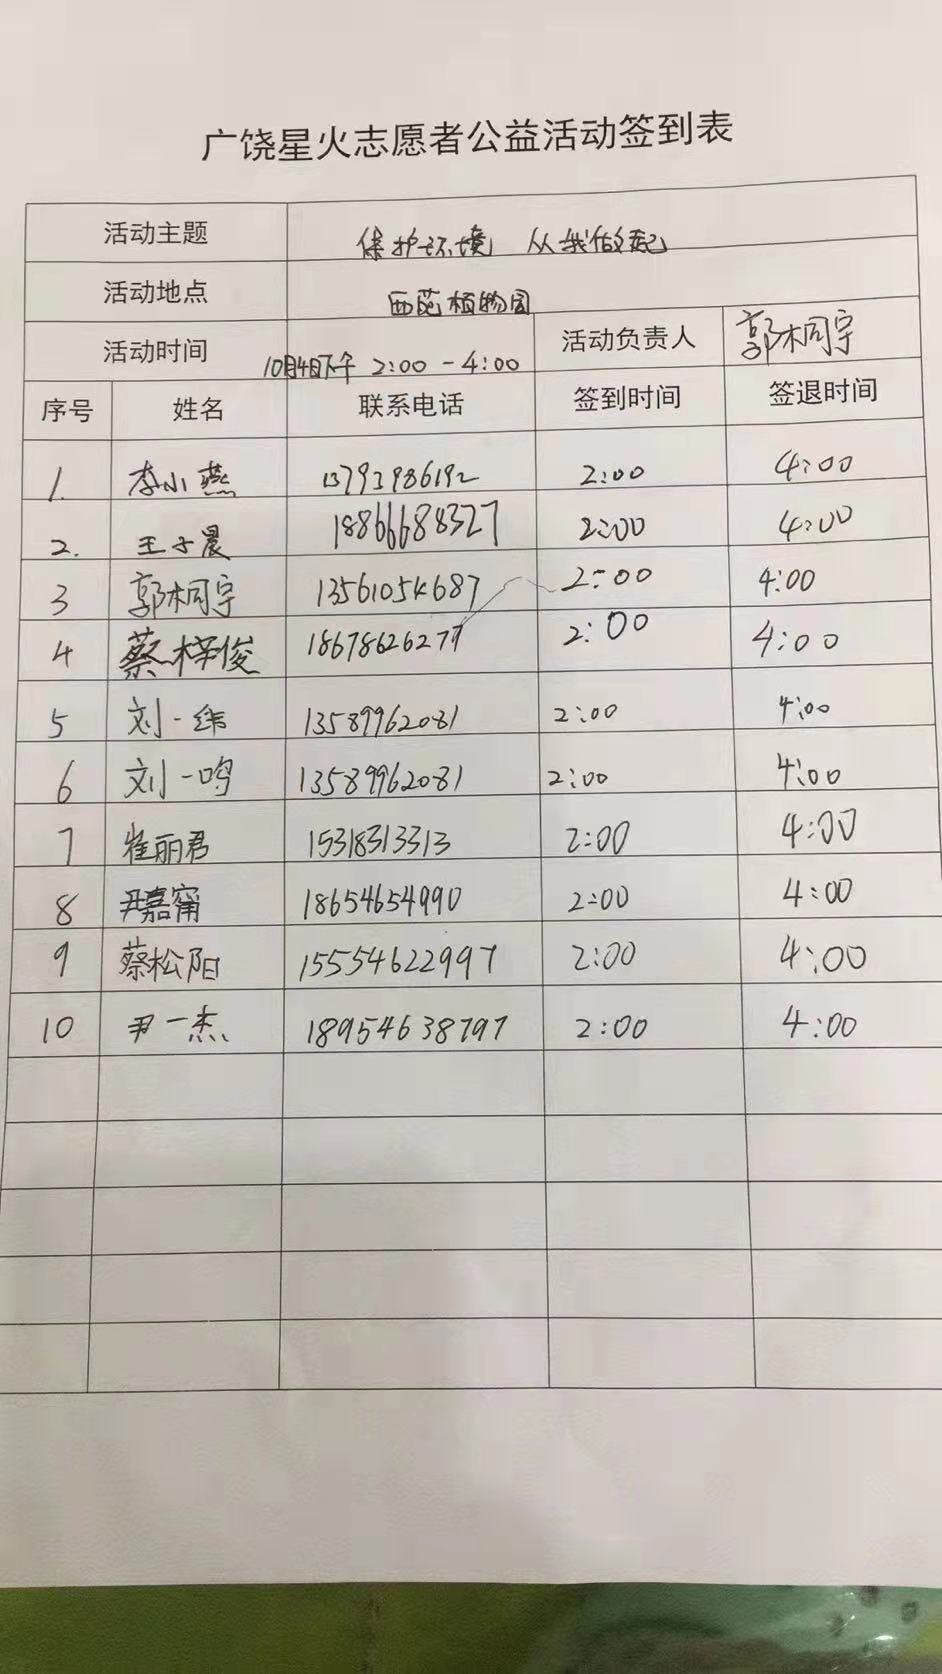 广饶星火志愿者公益活动签到表
活动主题 保护环境 从我做起
活动地点 西苑植物园
活动时间 10月4日下午 2:00-4:00 活动负责人 郭桐宇
序号 姓名 联系电话 签到时间 签退时间
1. 李小燕 13793986192 2:00 4:00
2. 王子晨 18866688327 2:00 4:00
3 郭桐宇 13561054687 2:00 4:00
4 蔡梓俊 18678626277 2:00 4:00
5 刘一纬 13589962081 2:00 4:00
6 刘一鸣 13589962081 2:00 4:00
7 崔丽君 15318313313 2:00 4:00
8 尹嘉甯 18654654990 2:00 4:00
9 蔡松阳 15554622997 2:00 4:00
10 尹一杰 18954638797 2:00 4:00